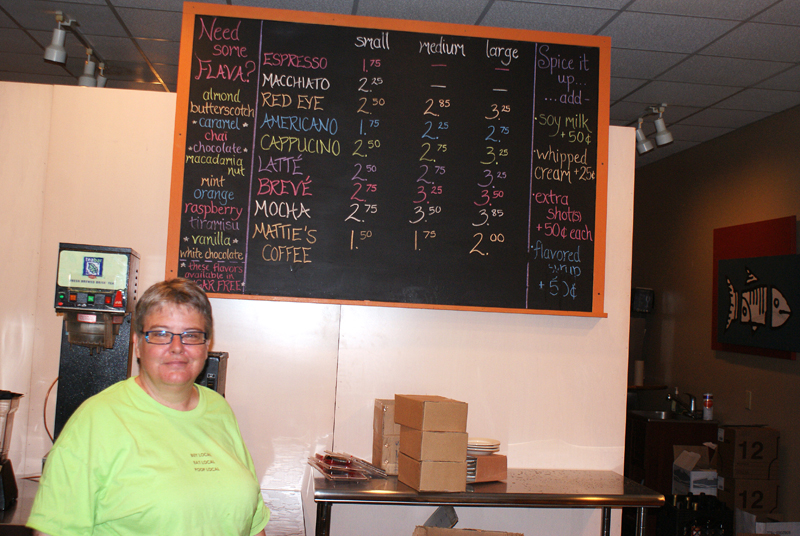 Need
some
FLAVA?
almond
butterscotch
*caramel*
chai
*chocolate*
macadamia
nut
mint
orange
raspberry
tiramisu
*vanilla*
white chocolate
* these flavors
available in
SUGAR FREE
small medium large
ESPRESSO 1.75 — —
MACCHIATO 2.25 — —
RED EYE 2.50 2.85 3.25
AMERICANO 1.75 2.25 2.75
CAPPUCINO 2.50 2.75 3.25
LATTÉ 2.50 2.75 3.25
BREVÉ 2.75 3.25 3.50
MOCHA 2.75 3.50 3.85
MATTIE'S
COFFEE 1.50 1.75 2.00
Spice it
up...
...add-
·soy milk
+50¢
·whipped
cream +25¢
·extra
shot(s)
+50¢ each
·flavored
syrup
+50¢
BUY LOCAL
EAT LOCAL
12
12